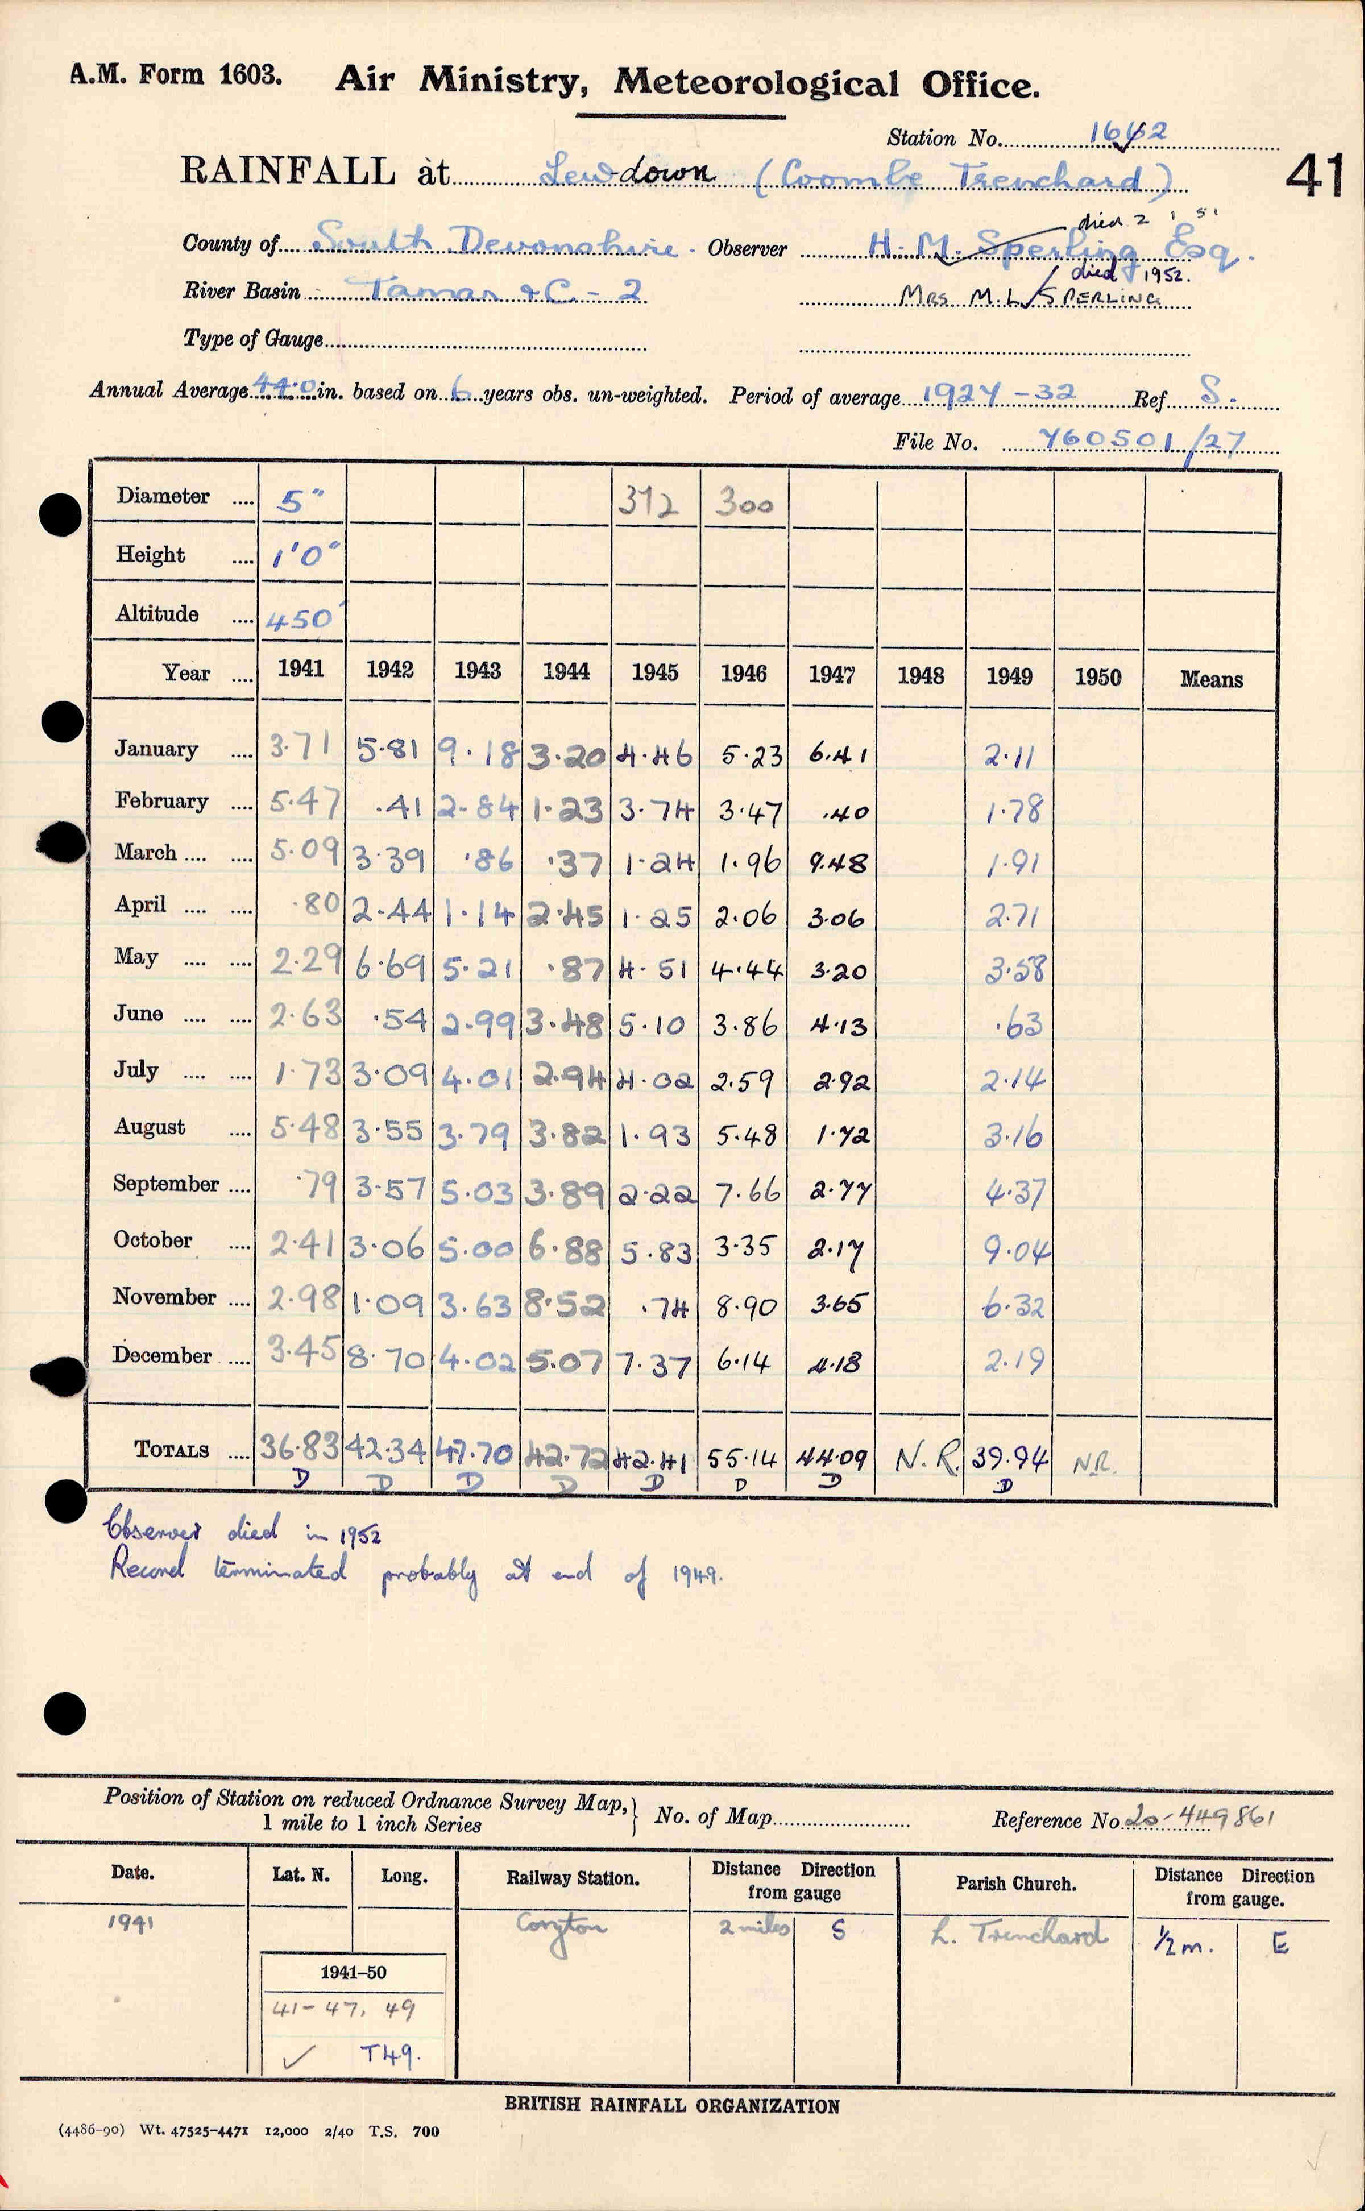 A.M. Form 1603. Air Ministry, Meteorological Office.
Station No. 1662
41
RAINFALL at Lewdown (Coombe Trenchard)
died 2 ' 51
County of South Devonshire. Observer H. M. Sperling Esq.
died 1952.
River Basin Tamar &C. - 2 MRS M. L. SPERLING
Type of Gauge
Annual Average 44.0 in. based on 6 years obs. un-weighted. Period of average 1927-32 Ref S.
File No. 760501/27
Diameter .... 5" 372 300
Height .... 1'0"
Altitude .... 450'
Year .... 1941 1942 1943 1944 1945 1946 1947 1948 1949 1950 Means
January .... 3.71 5.81 9.18 3.20 4.46 5.23 6.41 2.11
February .... 5.47 .41 2.84 1.23 3.74 3.47 .40 1.78
March .... .... 5.09 3.39 .86 .37 1.24 1.96 9.48 1.91
April .... .... .80 2.44 1.14 2.45 1.25 2.06 3.06 2.71
May .... .... 2.29 6.69 5.21 .87 4.51 4.44 3.20 3.58
June .... .... 2.63 .54 2.99 3.48 5.10 3.86 4.13 .63
July .... .... 1.73 3.09 4.01 2.94 4.02 2.59 2.92 2.14
August .... 5.48 3.55 3.79 3.82 1.93 5.48 1.72 3.16
September .... .79 3.57 5.03 3.89 2.22 7.66 2.77 4.37
October .... 2.41 3.06 5.00 6.88 5.83 3.35 2.17 9.04
November .... 2.98 1.09 3.63 8.52 .74 8.90 3.65 6.32
December .... 3.45 8.70 4.02 5.07 7.37 6.14 4.18 2.19
TOTALS .... 36.83 42.34 47.70 42.72 42.41 55.14 44.09 N.R. 39.94 NR.
D D D D D D D D
Observer died in 1952
Record terminated probably at end of 1949.
Position of Station on reduced Ordnance Survey Map,} No. of Map Reference No 20-449861
1 mile to 1 inch Series
Date. Lat. N. Long. Railway Station. Distance Direction from gauge Parish Church. Distance Direction from gauge.
1941 Coryton 2 miles S L. Trenchard 1/2 m. E
1941-50
41-47, 49
✓ T49.
BRITISH RAINFALL ORGANIZATION
(4486-90) Wt. 47525-4471 12,000 2/40 T.S. 700